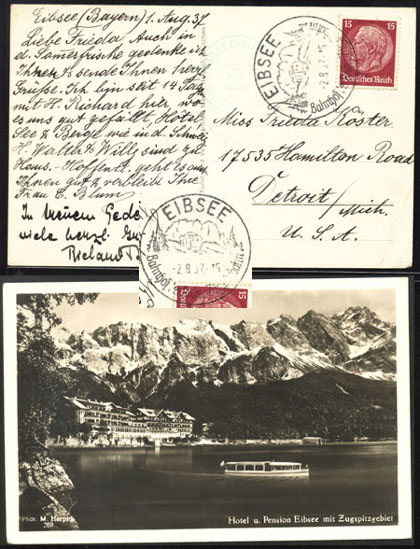 Eibsee (Bayern) 1. Aug. 37
Liebe Frieda Auch in
d. Sommerfrische gedenke ich
Ihrer & sende Ihnen herzl.
Grüße. Ich bin seit 14 Tag.
mit H. Richard hier, wo
es uns gut gefällt, Hotel,
See & Berge wie in d. Schweiz
H. Walth & Willy sind zu
Haus. - Hoffentl. geht es auch
Ihnen gut & verbleibe Ihre
Frau E. Blum
In
viele herzl.
EIBSEE
2.8.37.-15
Bahnhof
15 15
Deutsches Reich
Miss Frieda Köster
17535 Hamilton Road
Detroit / Mich.
U. S. A.
EIBSEE
-2.8.37.-15
Bahnhof
15
Phot. M. Herpich
Hotel u. Pension Eibsee mit Zugspitzgebiet